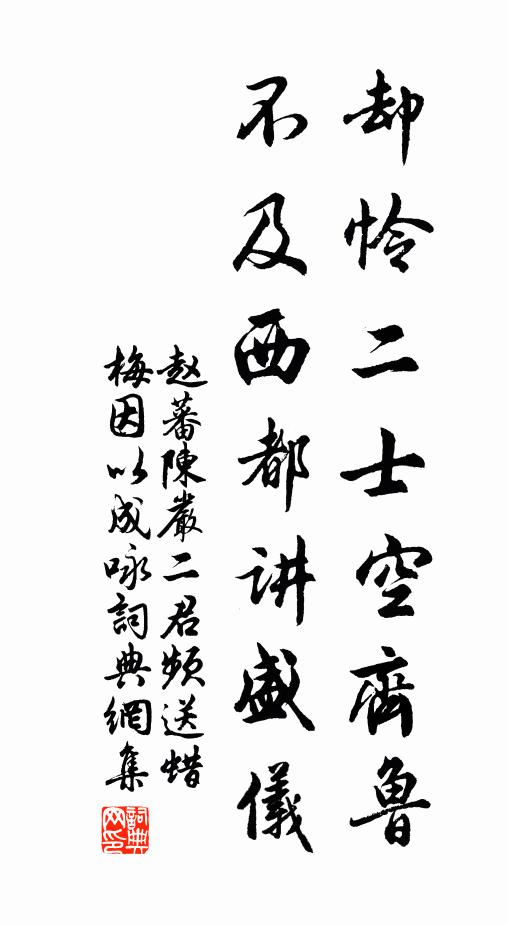 却怜二士空齊魯
不及西都讲盛儀
赵蕃陳嚴二君频送蜡
梅因以成咏詞典網集
詞典網印